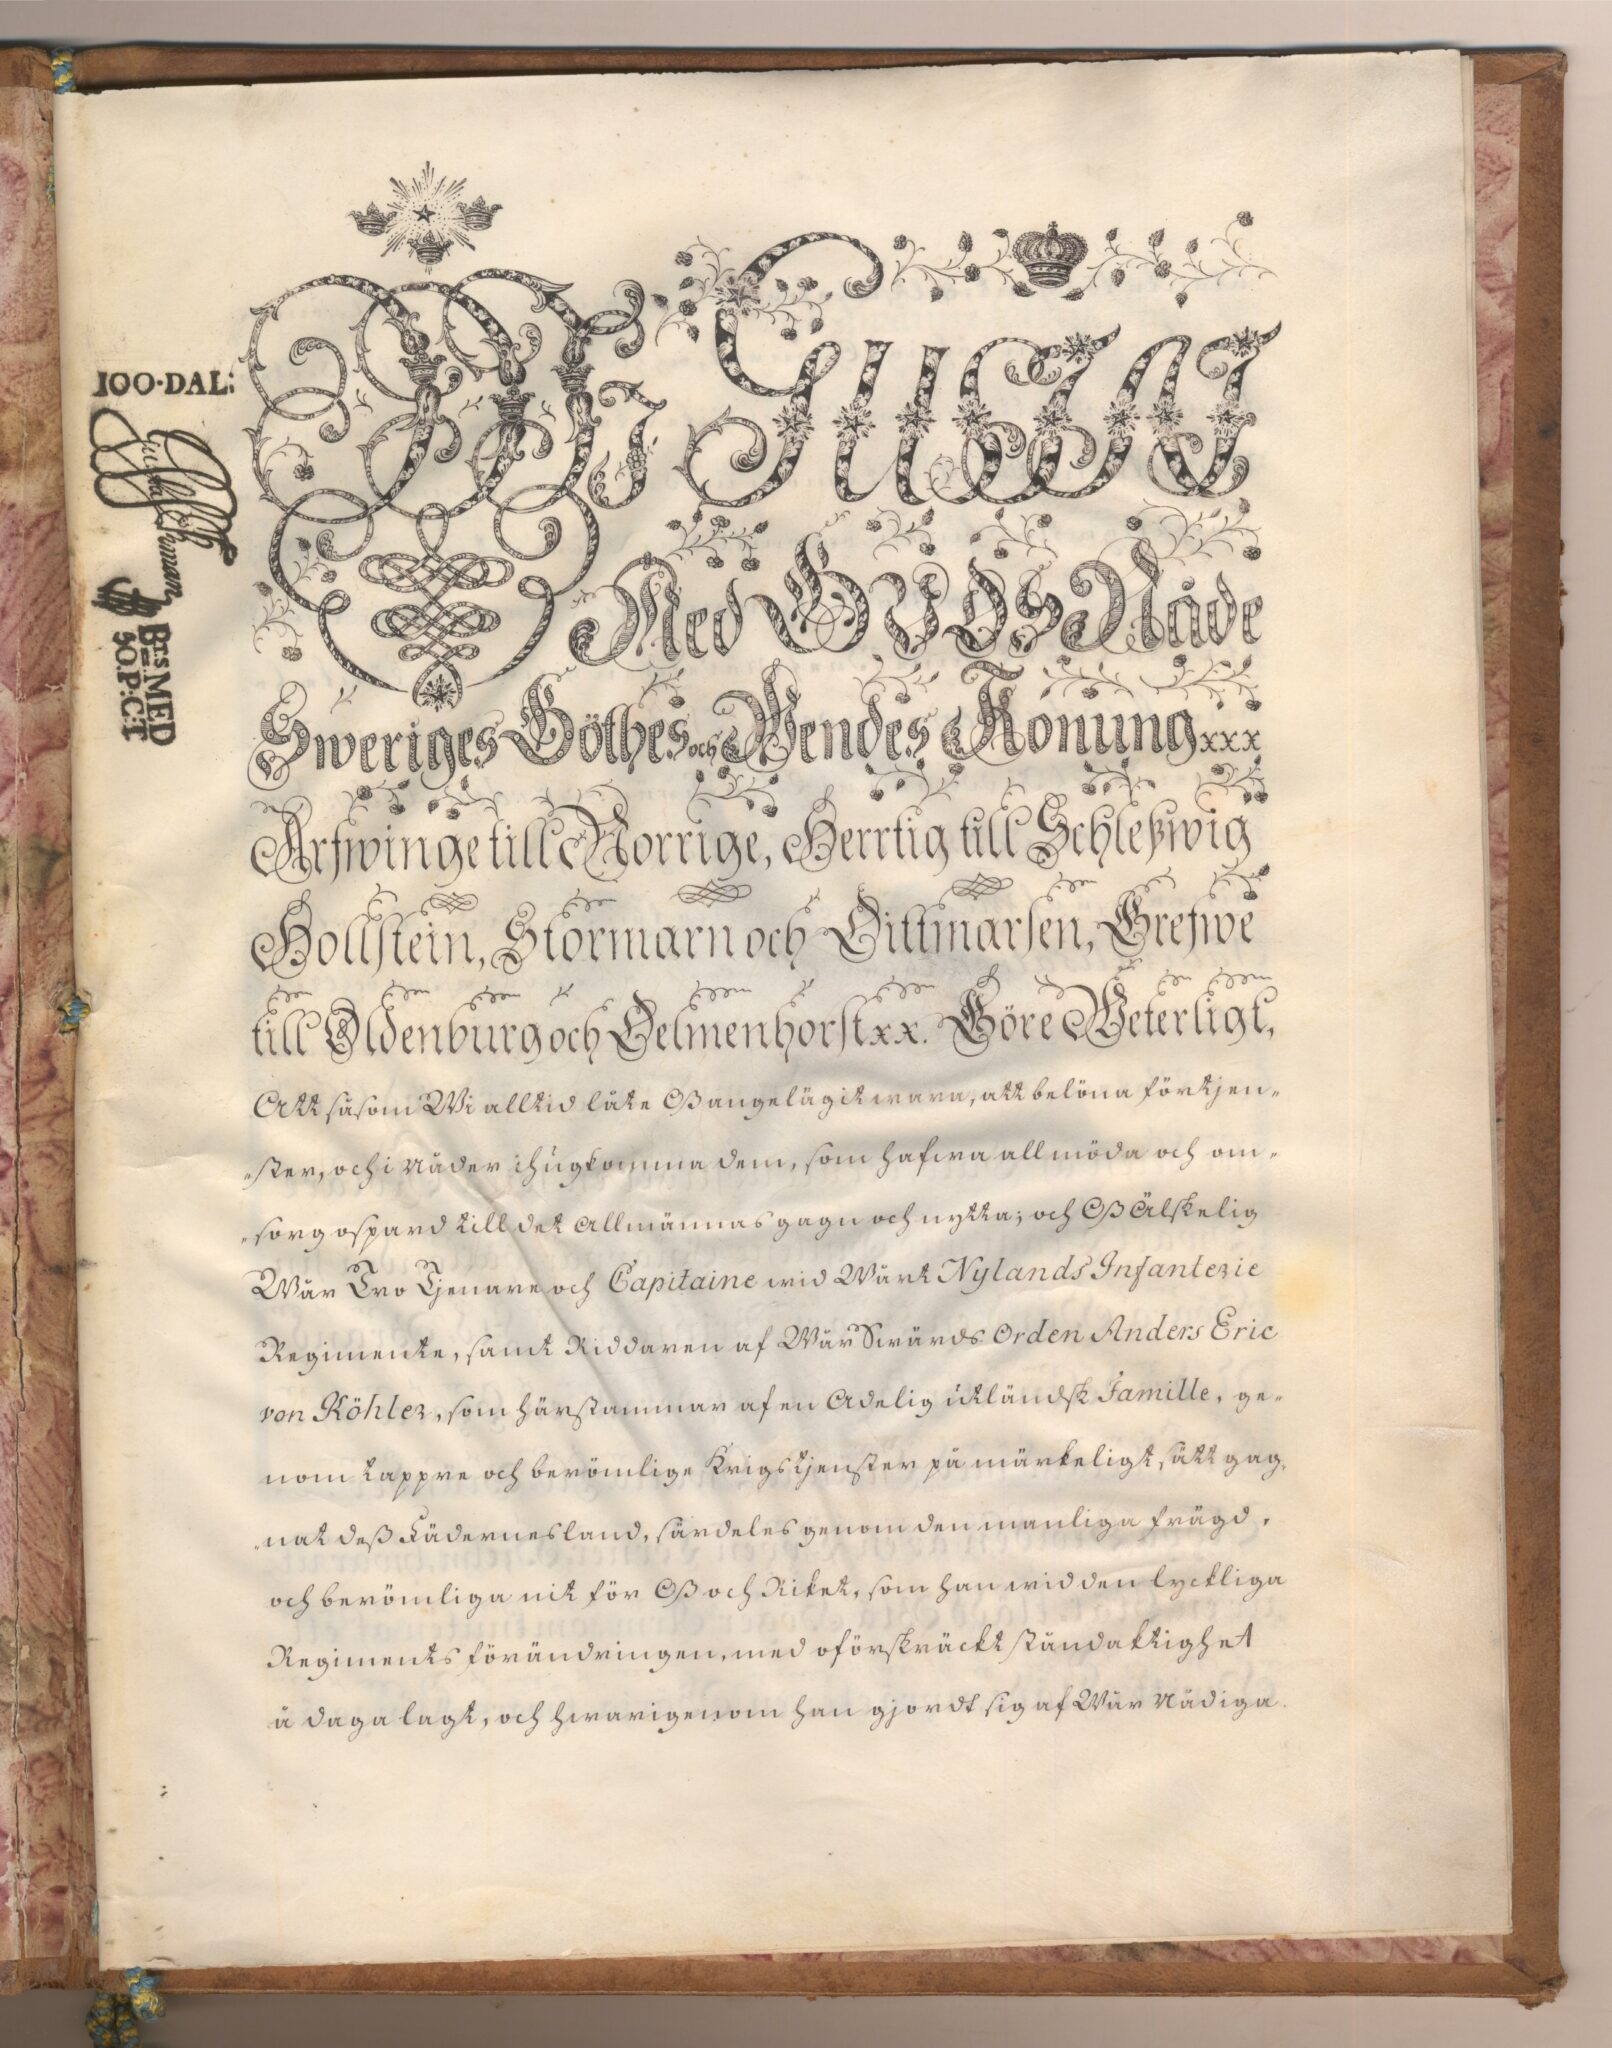 100·DAL:
Charta Sigillata
Bt:s MED
50.P:C:T
Wi GUSTAF
Med GUDS Nåde
Sweriges Göthes och Wendes Konung xxx
Arfwinge till Norrige, Herrtig till Schleßwig
Hollstein, Stormarn och Dittmarsen, Grefwe
till Oldenburg och Delmenhorst xx. Göre Weterligt,
Att såsom Wi alltid låte Oß angelägit wara, att belöna förtjen-
-ster, och i Nåder ihugkomma dem, som hafwa all möda och om-
-sorg ospard till det Allmännas gagn och nytta; och Oß Älskelig
Wår Tro Tjenare och Capitaine wid Wårt Nylands Infanterie
Regimente, samt Riddaren af Wår Swärds Orden Anders Eric
von Köhler, som härstammar af en Adelig utländsk Famille, ge-
nom tappre och berömlige Krigstjenster på märkeligt sätt gag-
-nat deß Fädernesland, särdeles genom den manliga frägd,
och berömliga nit för Oß och Riket, som han wid den lyckliga
Regiments förändringen, med oförskräckt ståndaktighet
å daga lagt, och hwarigenom han gjordt sig af Wår Nådiga